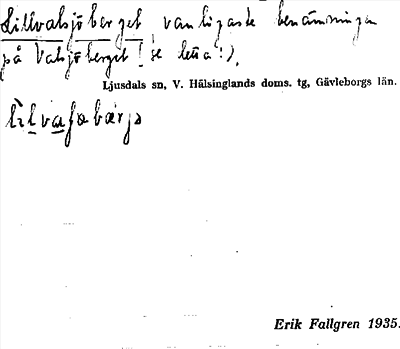 Lillvalsjöberget vanligaste benämningen
på Valsjöberget (se detta!).
Ljusdals sn, V. Hälsinglands doms. tg, Gävleborgs län.
Erik Fallgren 1935.